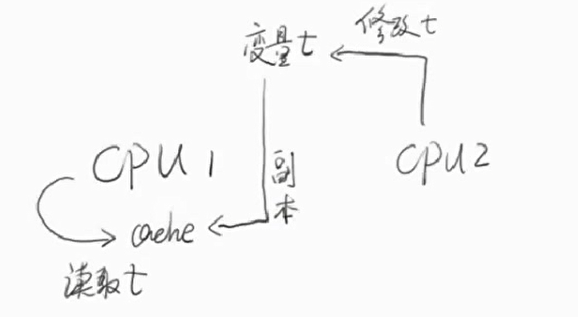 修改t
变量t
CPU1
CPU2
副本
cache
读取t